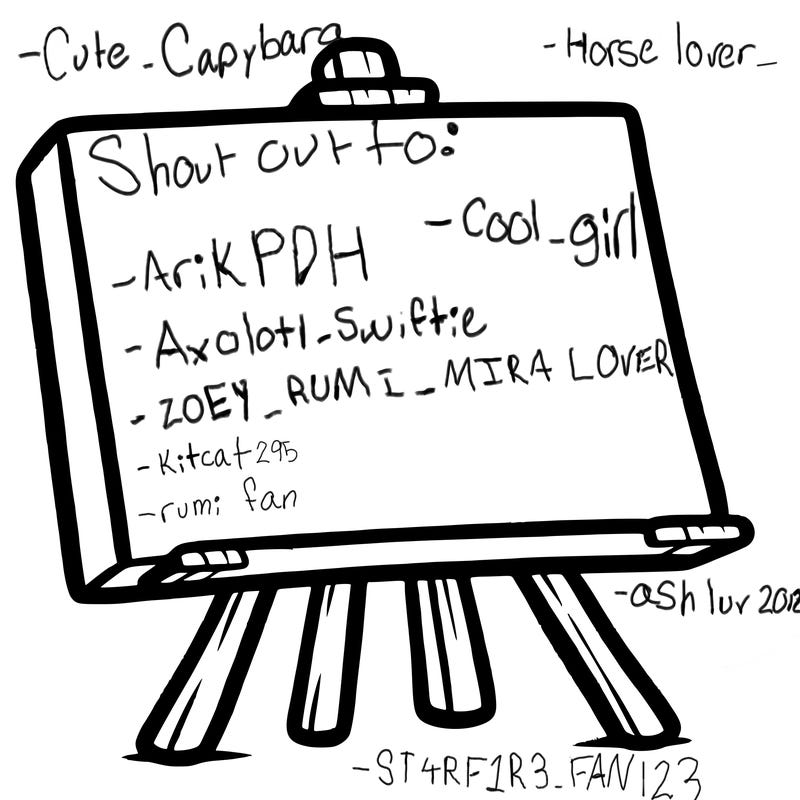 -Cute_Capybara
-Horse lover_
Shout out to:
-Cool_girl
-AriK PDH
-Axolotl_Swiftie
-ZOEY_RUMI_MIRA LOVER
-Kitcat295
-rumi fan
-ash luv 2012
-ST4RF1R3_FAN123